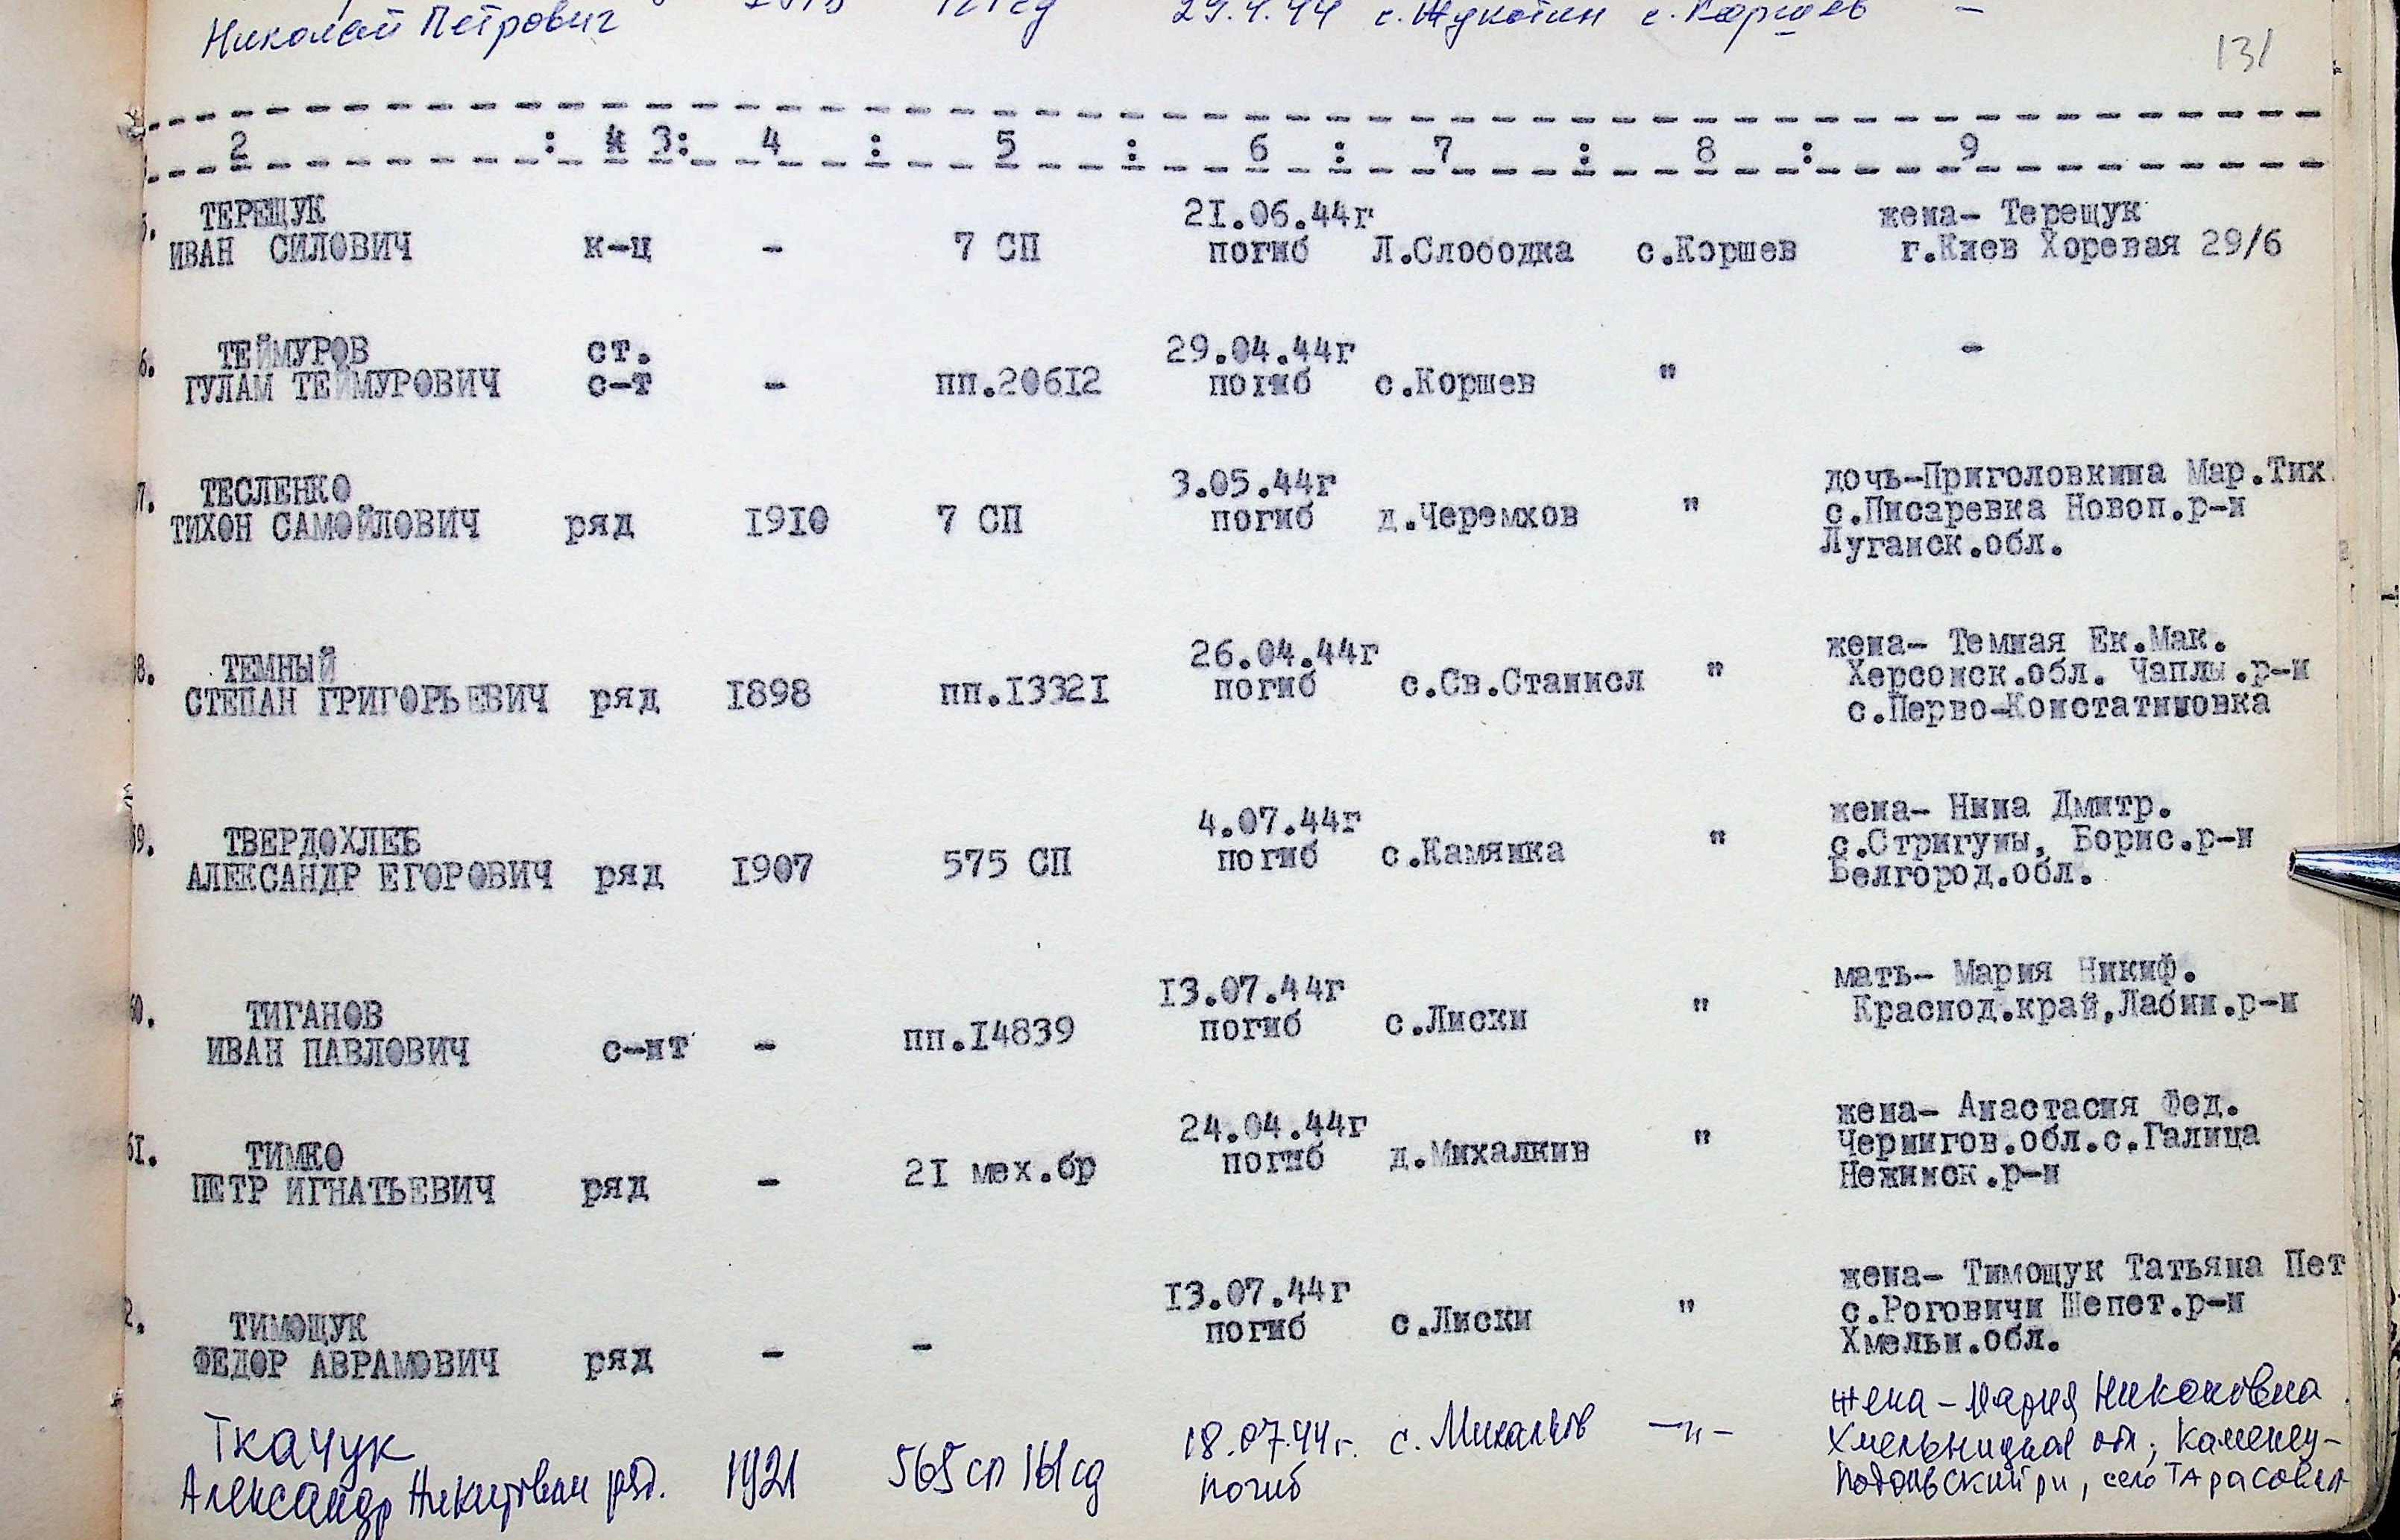 Николай Петрович 29.4.44 с.Жукотин с.Коршев -
131
2 : 3: 4 : 5 : 6 : 7 : 8 : 9
5. ТЕРЕЩУК
ИВАН СИЛОВИЧ к-ц - 7 СП 21.06.44г погиб Л.Слободка с.Коршев жена- Терещук
г.Киев Хоревая 29/6
6. ТЕЙМУРОВ ст. 29.04.44г -
ГУЛАМ ТЕЙМУРОВИЧ с-т - пп.20612 погиб с.Коршев "
7. ТЕСЛЕНКО 3.05.44г дочь-Приголовкина Мар.Тих.
ТИХОН САМОЙЛОВИЧ ряд 1910 7 СП погиб д.Черемхов " с.Писаревка Новоп.р-н
Луганск.обл.
8. ТЕМНЫЙ 26.04.44г жена- Темная Ек.Мак.
СТЕПАН ГРИГОРЬЕВИЧ ряд 1898 пп.13321 погиб с.Св.Станисл " Херсонск.обл. Чаплы.р-н
с.Перво-Констатиновка
59. ТВЕРДОХЛЕБ 4.07.44г жена- Нина Дмитр.
АЛЕКСАНДР ЕГОРОВИЧ ряд 1907 575 СП погиб с.Камянка " с.Стригуны, Борис.р-н
Белгород.обл.
60. ТИГАНОВ 13.07.44г мать- Мария Никиф.
ИВАН ПАВЛОВИЧ с-нт - пп.14839 погиб с.Лиски " Краснод.край,Лабин.р-н
61. ТИМКО 24.04.44г жена- Анастасия Фед.
ПЕТР ИГНАТЬЕВИЧ ряд - 21 мех.бр погиб д.Михалкив " Чернигов.обл.с.Галица
Нежинск.р-н
2. ТИМОЩУК 13.07.44г жена- Тимощук Татьяна Пет
ФЕДОР АВРАМОВИЧ ряд - - погиб с.Лиски " с.Роговичи Шепет.р-н
Хмельн.обл.
Ткачук 18.07.44г. с. Михалков -"- жена - Мария Никоновна
Александр Никитович ряд. 1921 565 сп 161 сд погиб Хмельницкая обл, Каменец-
Подольский рн, село Тарасовка